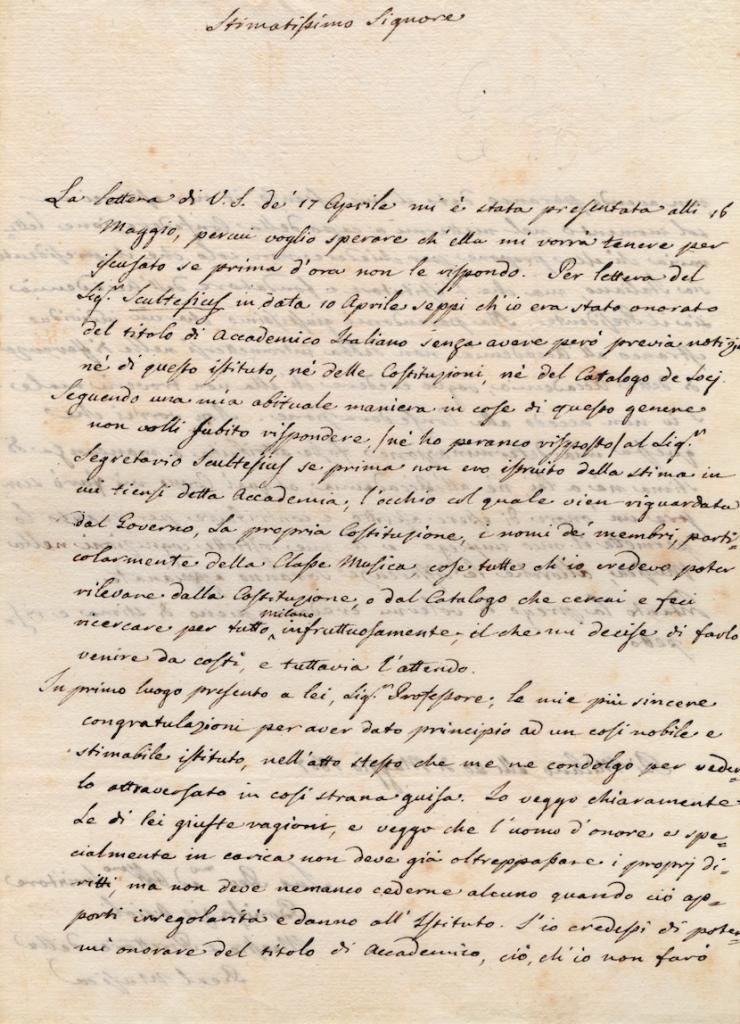 Stimatissimo Signore
La lettera di V. S. de' 17 Aprile mi è stata presentata alli 16
Maggio, percui voglio sperare ch'ella mi vorrà tenere per
iscusato se prima d'ora non le rispondo. Per lettera del
Sig.r Scultesius in data 10 Aprile seppi ch'io era stato onorato
del titolo di Accademico Italiano senza avere però previa notizia
nè di questo istituto, nè delle Costituzioni, nè del Catalogo de Socj.
Seguendo una mia abituale maniera in cose di questo genere
non volli subito rispondere /nè ho peranco risposto/ al Sig.r
Segretario Scultesius se prima non ero istruito della stima in
cui tiensi detta Accademia; l'occhio col quale vien riguardata
dal Governo, La propria Costituzione, i nomi de' membri, parti=
colarmente della Classe Musica cose tutte ch'io credevo poter
rilevare dalla Costituzione, o dal Catalogo che cercai e feci
ricercare per tutto Milano infruttuosamente; il che mi decise di farlo
venire da costì, e tuttavia l'attendo.
In primo luogo presento a lei, Sig.r Professore; le mie più sincere
congratulazioni per aver dato principio ad un così nobile e
stimabile istituto, nell'atto stesso che me ne condolgo per veder=
lo attraversato in così strana guisa. Io veggo chiaramente
Le di lei giuste ragioni, e veggo che l'uomo d'onore e spe=
cialmente in carica non deve già oltreppassare i proprj di=
ritti, ma non deve nemanco cederne alcuno quando ciò ap=
porti irregolarità e danno all'Istituto. S'io credessi di poter
mi onorare del titolo di Accademico, ciò, ch'io non farò